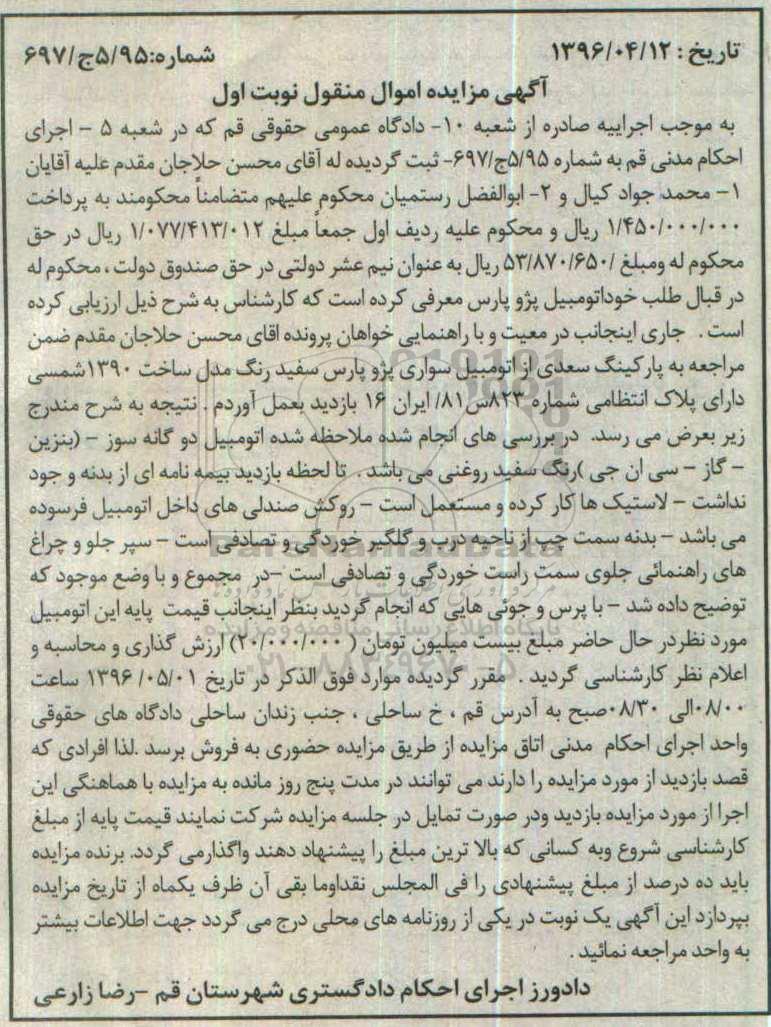 تاریخ : ۱۳۹۶/۰۴/۱۲
شماره:۵/۹۵ج/۶۹۷
آگهی مزایده اموال منقول نوبت اول
به موجب اجراییه صادره از شعبه ۱۰- دادگاه عمومی حقوقی قم که در شعبه ۵ - اجرای
احکام مدنی قم به شماره ۵/۹۵ج/۶۹۷- ثبت گردیده له آقای محسن حلاجان مقدم علیه آقایان
۱- محمد جواد کیال و ۲- ابوالفضل رستمیان محکوم علیهم متضامناً محکومند به پرداخت
۱/۴۵۰/۰۰۰/۰۰۰ ریال و محکوم علیه ردیف اول جمعاً مبلغ ۱/۰۷۷/۴۱۳/۰۱۲ ریال در حق
محکوم له ومبلغ /۵۳/۸۷۰/۶۵۰ ریال به عنوان نیم عشر دولتی در حق صندوق دولت ، محکوم له
در قبال طلب خوداتومبیل پژو پارس معرفی کرده است که کارشناس به شرح ذیل ارزیابی کرده
است . جاری اینجانب در معیت و با راهنمایی خواهان پرونده اقای محسن حلاجان مقدم ضمن
مراجعه به پارکینگ سعدی از اتومبیل سواری پژو پارس سفید رنگ مدل ساخت ۱۳۹۰شمسی
دارای پلاک انتظامی شماره ۸۲۳س۸۱/ ایران ۱۶ بازدید بعمل آوردم . نتیجه به شرح مندرج
زیر بعرض می رسد. در بررسی های انجام شده ملاحظه شده اتومبیل دو گانه سوز - (بنزین
- گاز - سی ان جی )رنگ سفید روغنی می باشد . تا لحظه بازدید بیمه نامه ای از بدنه و جود
نداشت - لاستیک ها کار کرده و مستعمل است - روکش صندلی های داخل اتومبیل فرسوده
می باشد - بدنه سمت چپ از ناحیه درب و گلگیر خوردگی و تصادفی است - سپر جلو و چراغ
های راهنمائی جلوی سمت راست خوردگی و تصادفی است -در مجموع و با وضع موجود که
توضیح داده شد - با پرس و جوئی هایی که انجام گردید بنظر اینجانب قیمت پایه این اتومبیل
مورد نظردر حال حاضر مبلغ بیست میلیون تومان (۲۰/۰۰۰/۰۰۰) ارزش گذاری و محاسبه و
اعلام نظر کارشناسی گردید . مقرر گردیده موارد فوق الذکر در تاریخ ۱۳۹۶/۰۵/۰۱ ساعت
۰۸/۰۰الی ۰۸/۳۰صبح به آدرس قم ، خ ساحلی ، جنب زندان ساحلی دادگاه های حقوقی
واحد اجرای احکام مدنی اتاق مزایده از طریق مزایده حضوری به فروش برسد .لذا افرادی که
قصد بازدید از مورد مزایده را دارند می توانند در مدت پنج روز مانده به مزایده با هماهنگی این
اجرا از مورد مزایده بازدید ودر صورت تمایل در جلسه مزایده شرکت نمایند قیمت پایه از مبلغ
کارشناسی شروع وبه کسانی که بالا ترین مبلغ را پیشنهاد دهند واگذارمی گردد. برنده مزایده
باید ده درصد از مبلغ پیشنهادی را فی المجلس نقداوما بقی آن ظرف یکماه از تاریخ مزایده
بپردازد این آگهی یک نوبت در یکی از روزنامه های محلی درج می گردد جهت اطلاعات بیشتر
به واحد مراجعه نمائید .
دادورز اجرای احکام دادگستری شهرستان قم -رضا زارعی